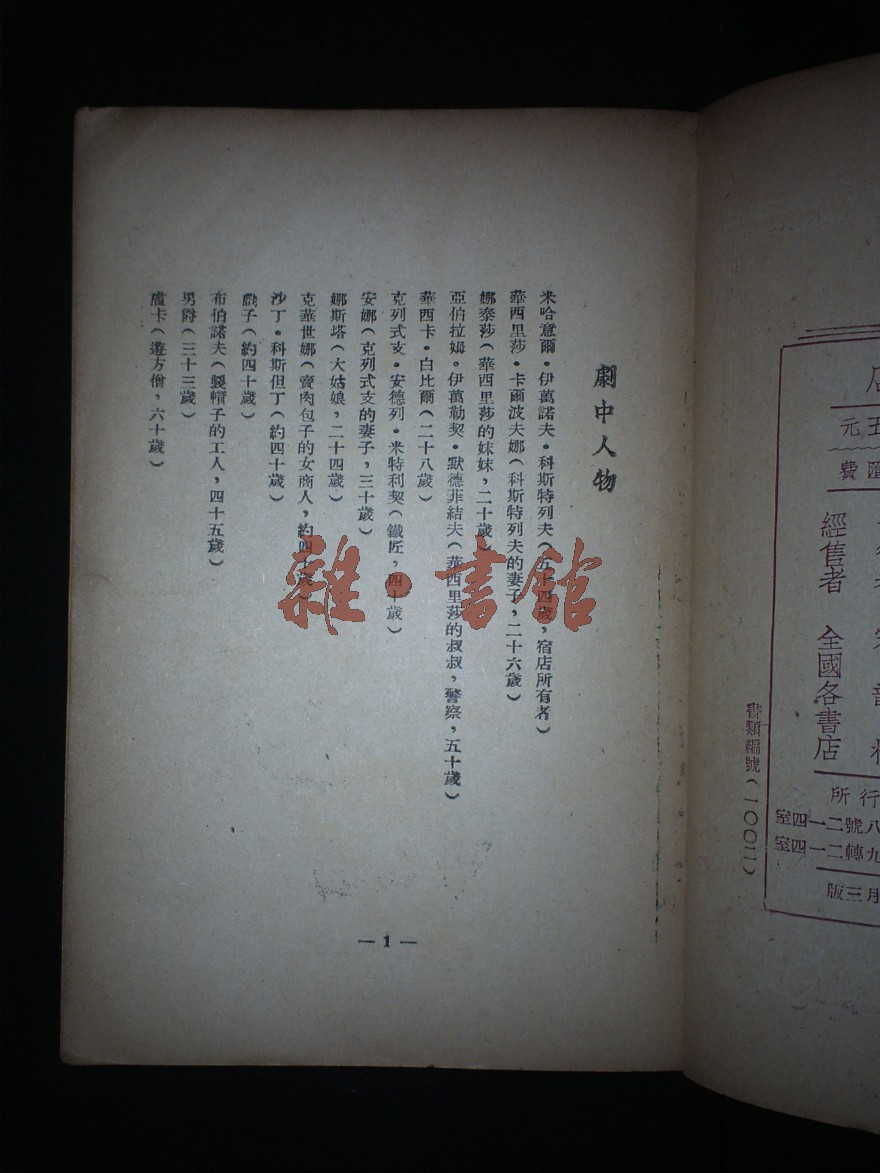 劇中人物
米哈意爾・伊萬諾夫・科斯特列夫（五十四歲，宿店所有者）
華西里莎・卡爾波夫娜（科斯特列夫的妻子，二十六歲）
娜泰莎（華西里莎的妹妹，二十歲）
亞伯拉姆。伊萬勒契・默德菲結夫（華西里莎的叔叔，警察，五十歲）
華西卡・白比爾（二十八歲）
克列式支・安德列・米特利契（鐵匠，四十歲）
安娜（克列式支的妻子，三十歲）
娜斯塔（大姑娘，二十四歲）
克華世娜（賣肉包子的女商人，約四十歲）
沙丁・科斯但丁（約四十歲）
戲子（約四十歲）
布伯諾夫（製帽子的工人，四十五歲）
男爵（三十三歲）
盧卡（遊方僧，六十歲）
— 1 —
雜・書館
店
五元
匯費
經售者 全國各書店
行所
八號二一四室
九轉二一四室
月三版
書類編號（一〇〇二）